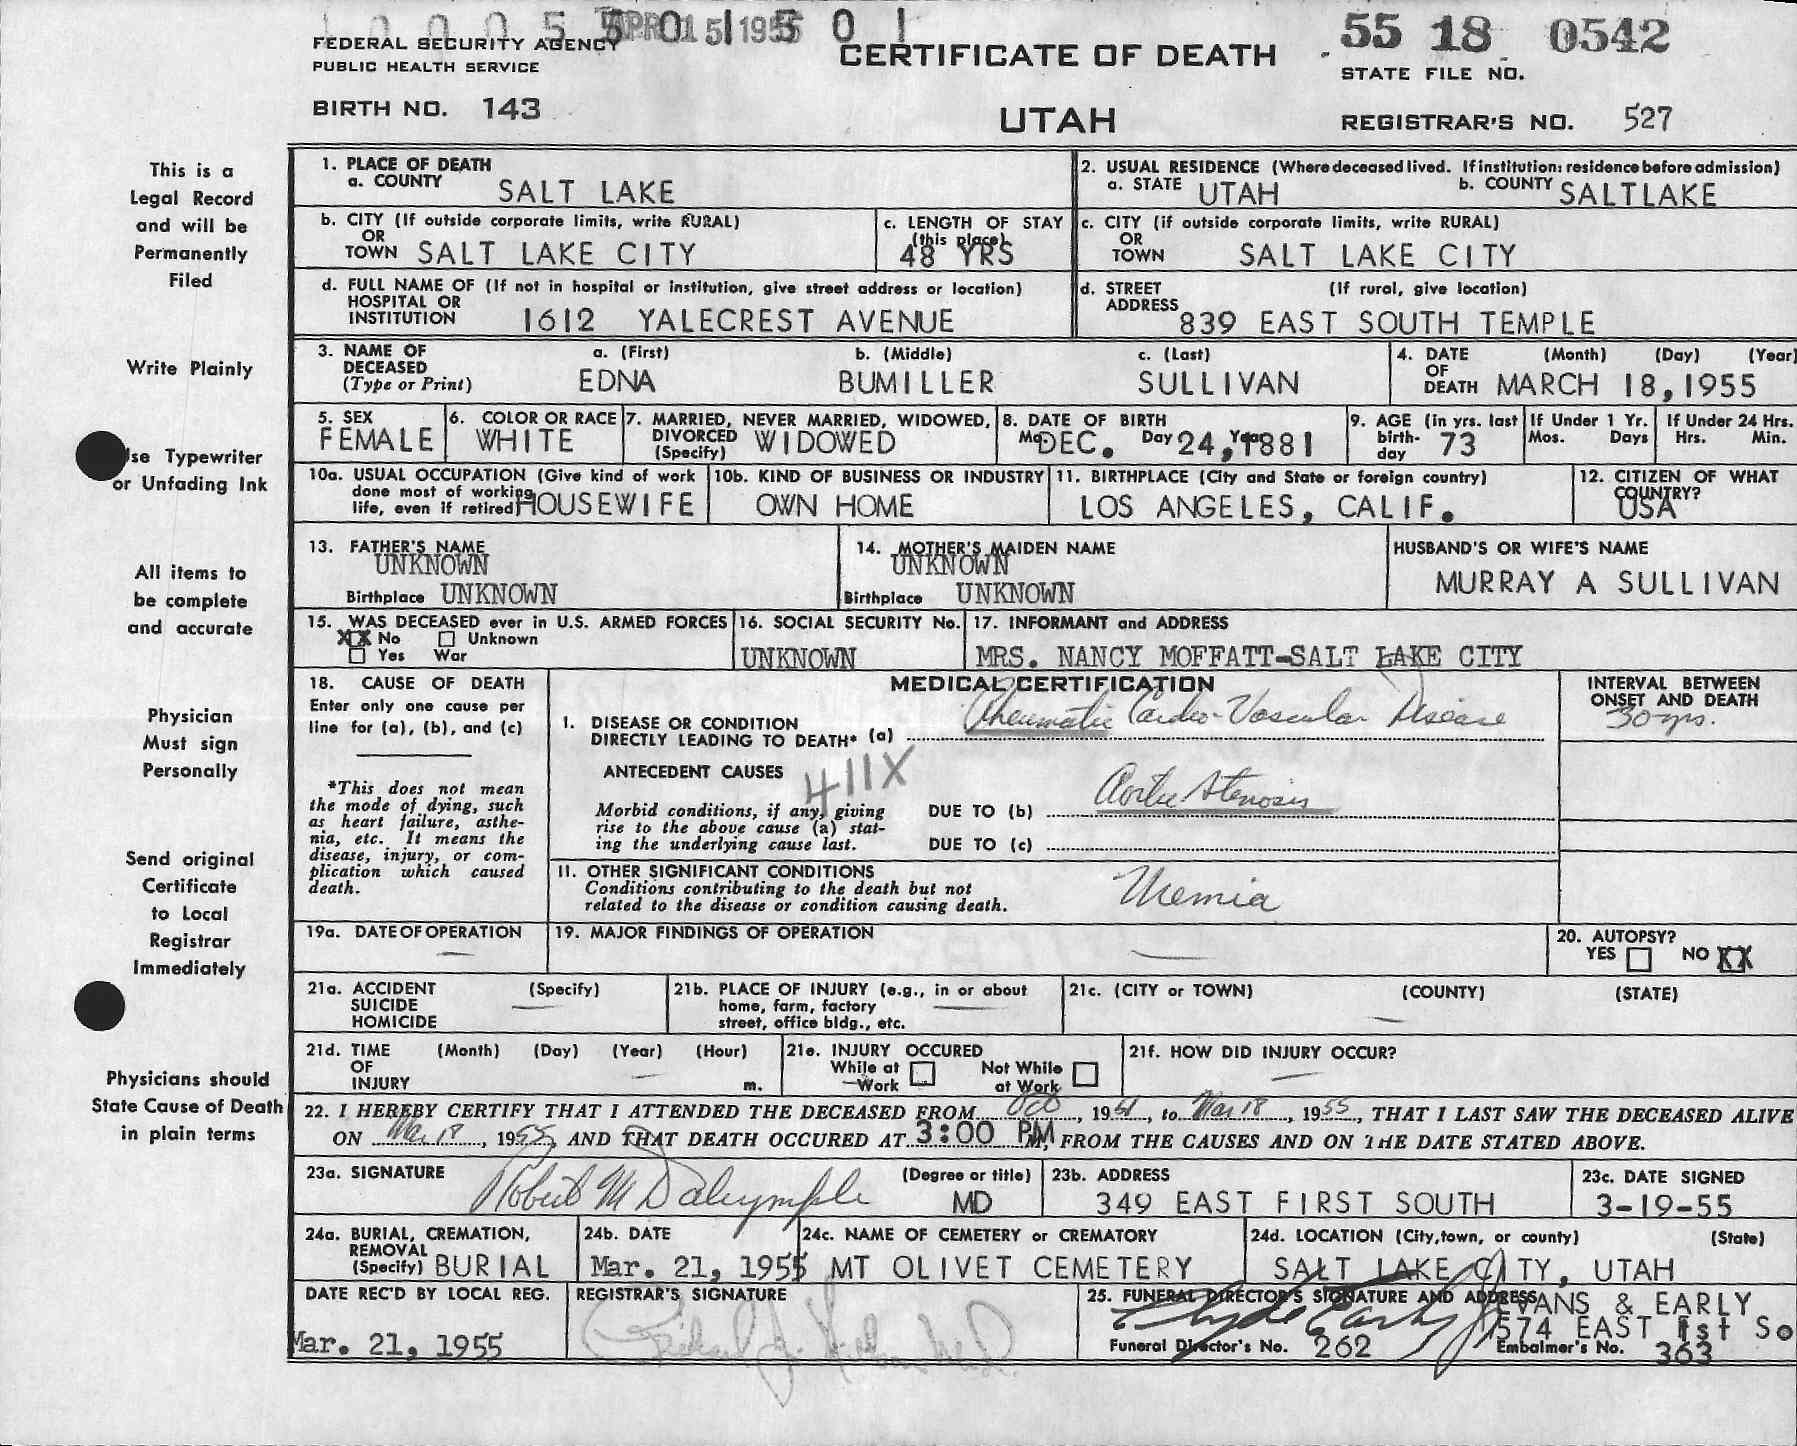 APR 15 1955
FEDERAL SECURITY AGENCY
PUBLIC HEALTH SERVICE
CERTIFICATE OF DEATH
55 18 0542
STATE FILE NO.
BIRTH NO. 143
UTAH
REGISTRAR'S NO. 527
This is a
Legal Record
and will be
Permanently
Filed
Write Plainly
se Typewriter
or Unfading Ink
All items to
be complete
and accurate
Physician
Must sign
Personally
Send original
Certificate
to Local
Registrar
Immediately
Physicians should
State Cause of Death
in plain terms
1. PLACE OF DEATH
a. COUNTY SALT LAKE
2. USUAL RESIDENCE (Where deceased lived. If institution: residence before admission)
a. STATE UTAH b. COUNTY SALTLAKE
b. CITY (If outside corporate limits, write RURAL)
OR
TOWN SALT LAKE CITY
c. LENGTH OF STAY
(this place)
48 YRS
c. CITY (if outside corporate limits, write RURAL)
OR
TOWN SALT LAKE CITY
d. FULL NAME OF (If not in hospital or institution, give street address or location)
HOSPITAL OR
INSTITUTION 1612 YALECREST AVENUE
d. STREET (If rural, give location)
ADDRESS 839 EAST SOUTH TEMPLE
3. NAME OF DECEASED
(Type or Print)
a. (First) b. (Middle) c. (Last)
EDNA BUMILLER SULLIVAN
4. DATE (Month) (Day) (Year)
OF
DEATH MARCH 18, 1955
5. SEX
FEMALE
6. COLOR OR RACE
WHITE
7. MARRIED, NEVER MARRIED, WIDOWED,
DIVORCED WIDOWED
(Specify)
8. DATE OF BIRTH
DEC. Day 24, 1881
9. AGE (in yrs. last
birth-
day 73
If Under 1 Yr.
Mos. Days
If Under 24 Hrs.
Hrs. Min.
10a. USUAL OCCUPATION (Give kind of work
done most of working
life, even if retired) HOUSEWIFE
10b. KIND OF BUSINESS OR INDUSTRY
OWN HOME
11. BIRTHPLACE (City and State or foreign country)
LOS ANGELES, CALIF.
12. CITIZEN OF WHAT
COUNTRY?
USA
13. FATHER'S NAME
UNKNOWN
Birthplace UNKNOWN
14. MOTHER'S MAIDEN NAME
UNKNOWN
Birthplace UNKNOWN
HUSBAND'S OR WIFE'S NAME
MURRAY A SULLIVAN
15. WAS DECEASED ever in U.S. ARMED FORCES
XX No Unknown
Yes War
16. SOCIAL SECURITY No.
UNKNOWN
17. INFORMANT and ADDRESS
MRS. NANCY MOFFATT-SALT LAKE CITY
18. CAUSE OF DEATH
Enter only one cause per
line for (a), (b), and (c)
*This does not mean
the mode of dying, such
as heart failure, asthe-
nia, etc. It means the
disease, injury, or com-
plication which caused
death.
MEDICAL CERTIFICATION
INTERVAL BETWEEN
ONSET AND DEATH
I. DISEASE OR CONDITION
DIRECTLY LEADING TO DEATH* (a) Rheumatic Cardio-Vascular Disease 30 yrs.
ANTECEDENT CAUSES 411X
Morbid conditions, if any, giving
rise to the above cause (a) stat-
ing the underlying cause last.
DUE TO (b) Aortic Stenosis
DUE TO (c)
II. OTHER SIGNIFICANT CONDITIONS
Conditions contributing to the death but not
related to the disease or condition causing death.
Uremia
19a. DATE OF OPERATION
19. MAJOR FINDINGS OF OPERATION
20. AUTOPSY?
YES NO XX
21a. ACCIDENT (Specify)
SUICIDE
HOMICIDE
21b. PLACE OF INJURY (e.g., in or about
home, farm, factory
street, office bldg., etc.
21c. (CITY or TOWN) (COUNTY) (STATE)
21d. TIME (Month) (Day) (Year) (Hour)
OF
INJURY m.
21e. INJURY OCCURED
While at Work Not While at Work
21f. HOW DID INJURY OCCUR?
22. I HEREBY CERTIFY THAT I ATTENDED THE DECEASED FROM Oct, 1951, to Mar 18, 1955, THAT I LAST SAW THE DECEASED ALIVE
ON Mar 18, 1955, AND THAT DEATH OCCURED AT 3:00 PM, FROM THE CAUSES AND ON THE DATE STATED ABOVE.
23a. SIGNATURE (Degree or title)
Robert M Dalrymple MD
23b. ADDRESS
349 EAST FIRST SOUTH
23c. DATE SIGNED
3-19-55
24a. BURIAL, CREMATION,
REMOVAL
(Specify) BURIAL
24b. DATE
Mar. 21, 1955
24c. NAME OF CEMETERY or CREMATORY
MT OLIVET CEMETERY
24d. LOCATION (City, town, or county) (State)
SALT LAKE CITY, UTAH
DATE REC'D BY LOCAL REG.
Mar. 21, 1955
REGISTRAR'S SIGNATURE
25. FUNERAL DIRECTOR'S SIGNATURE AND ADDRESS
Clyde Early
EVANS & EARLY
574 EAST 1st So
Funeral Director's No. 262
Embalmer's No. 363